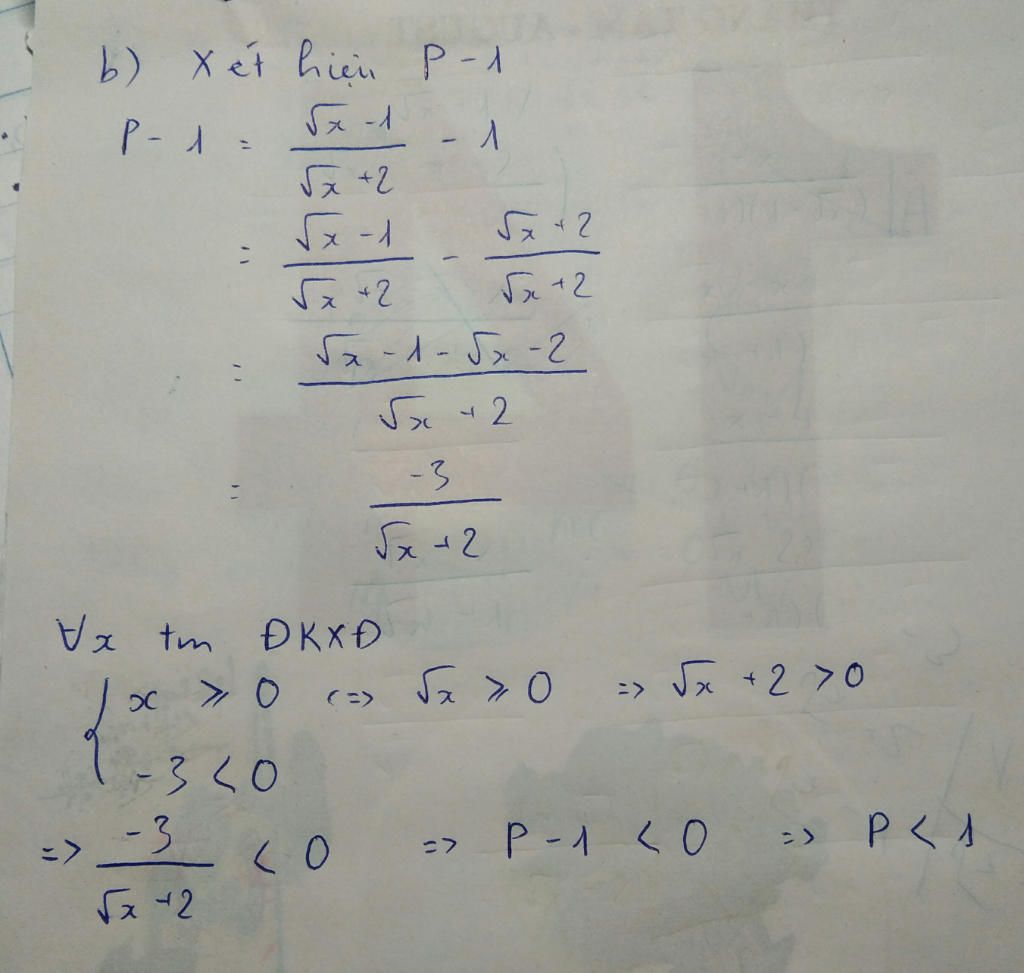 b) Xét hiệu P - 1
P - 1 = \frac{\sqrt{x} - 1}{\sqrt{x} + 2} - 1
= \frac{\sqrt{x} - 1}{\sqrt{x} + 2} - \frac{\sqrt{x} + 2}{\sqrt{x} + 2}
= \frac{\sqrt{x} - 1 - \sqrt{x} - 2}{\sqrt{x} + 2}
= \frac{-3}{\sqrt{x} + 2}
∀x tm ĐKXĐ
{ x ≥ 0 <=> √x ≥ 0 => √x + 2 > 0
-3 < 0
=> \frac{-3}{\sqrt{x} + 2} < 0 => P - 1 < 0 => P < 1